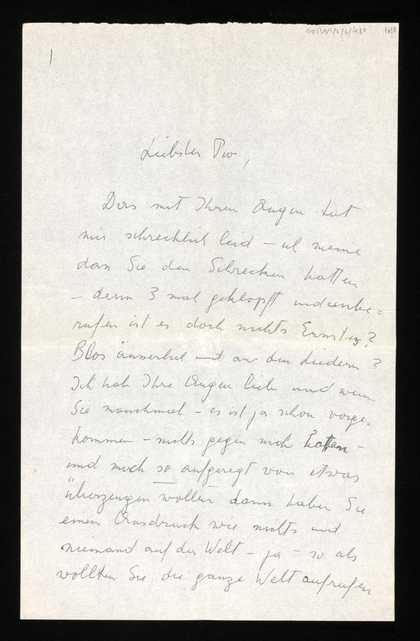 1
Liebster Pw.,
Das mit Ihren Augen tut
mir schrecklich leid – ich meine
dass Sie den Schrecken hatten
– denn 3 mal geklopft und unbe=
rufen ist es doch nichts Ernstes?
Blos äusserlich und an den Liedern?
Ich hab Ihre Augen lieb und wenn
Sie manchmal – es ist ja schon vorge-
kommen – nichts gegen mich hatten –
und mich so aufgeregt von etwas
überzeugen wollten dann haben Sie
einen Ausdruck wie nichts und
niemand auf der Welt – ja – so als
wollten Sie die ganze Welt aufrufen